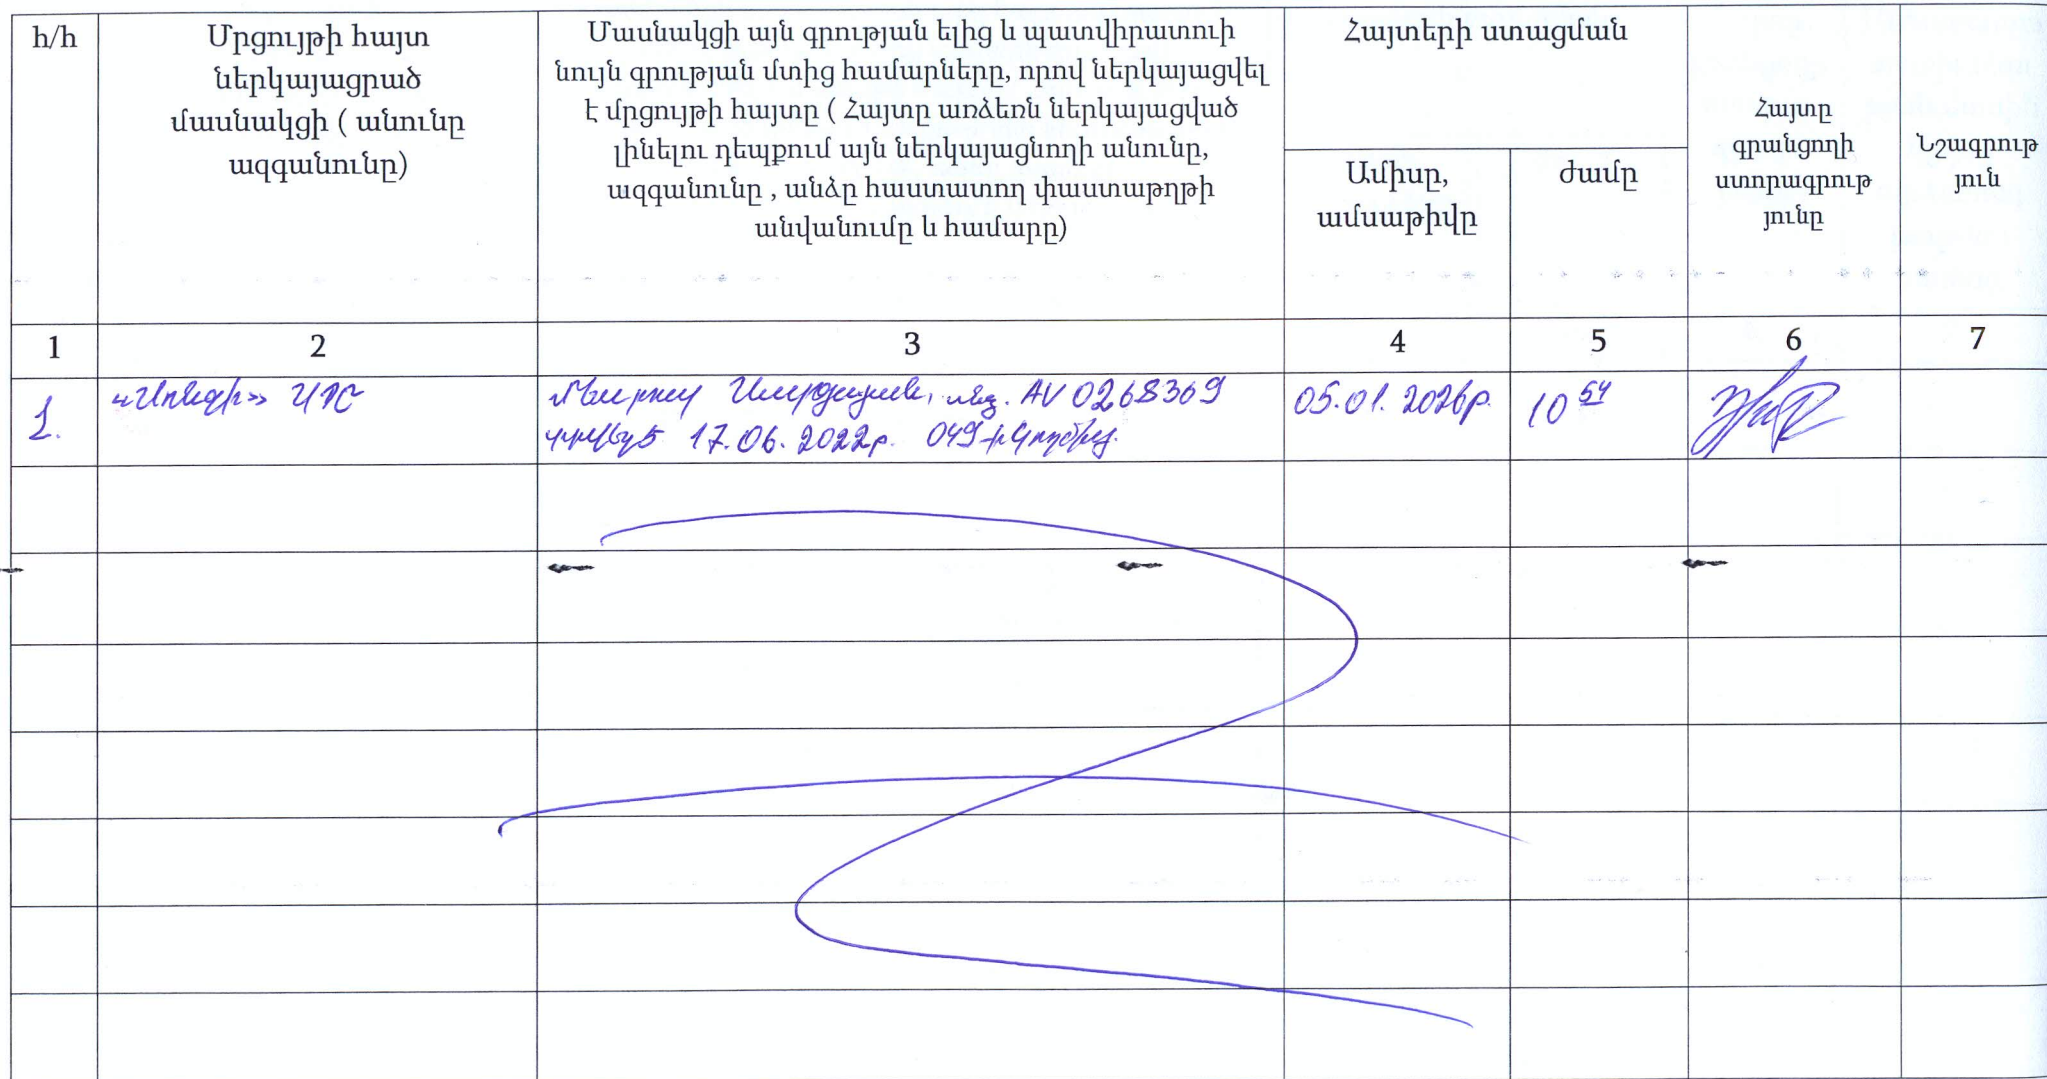 հ/հ
Մրցույթի հայտ
ներկայացրած
մասնակցի ( անունը
ազգանունը)
Մասնակցի այն գրության ելից և պատվիրատուի
նույն գրության մտից համարները, որով ներկայացվել
է մրցույթի հայտը ( Հայտը առձեռն ներկայացված
լինելու դեպքում այն ներկայացնողի անունը,
ազգանունը , անձը հաստատող փաստաթղթի
անվանումը և համարը)
Հայտերի ստացման
Ամիսը,
ամսաթիվը
ժամը
Հայտը
գրանցողի
ստորագրութ
յունը
Նշագրութ
յուն
1 2 3 4 5 6 7
1.
ՍՊԸ
Սարգսյան, անձ. AV 0268369
17.06.2022թ. 049
05.01.2026թ.
10 54